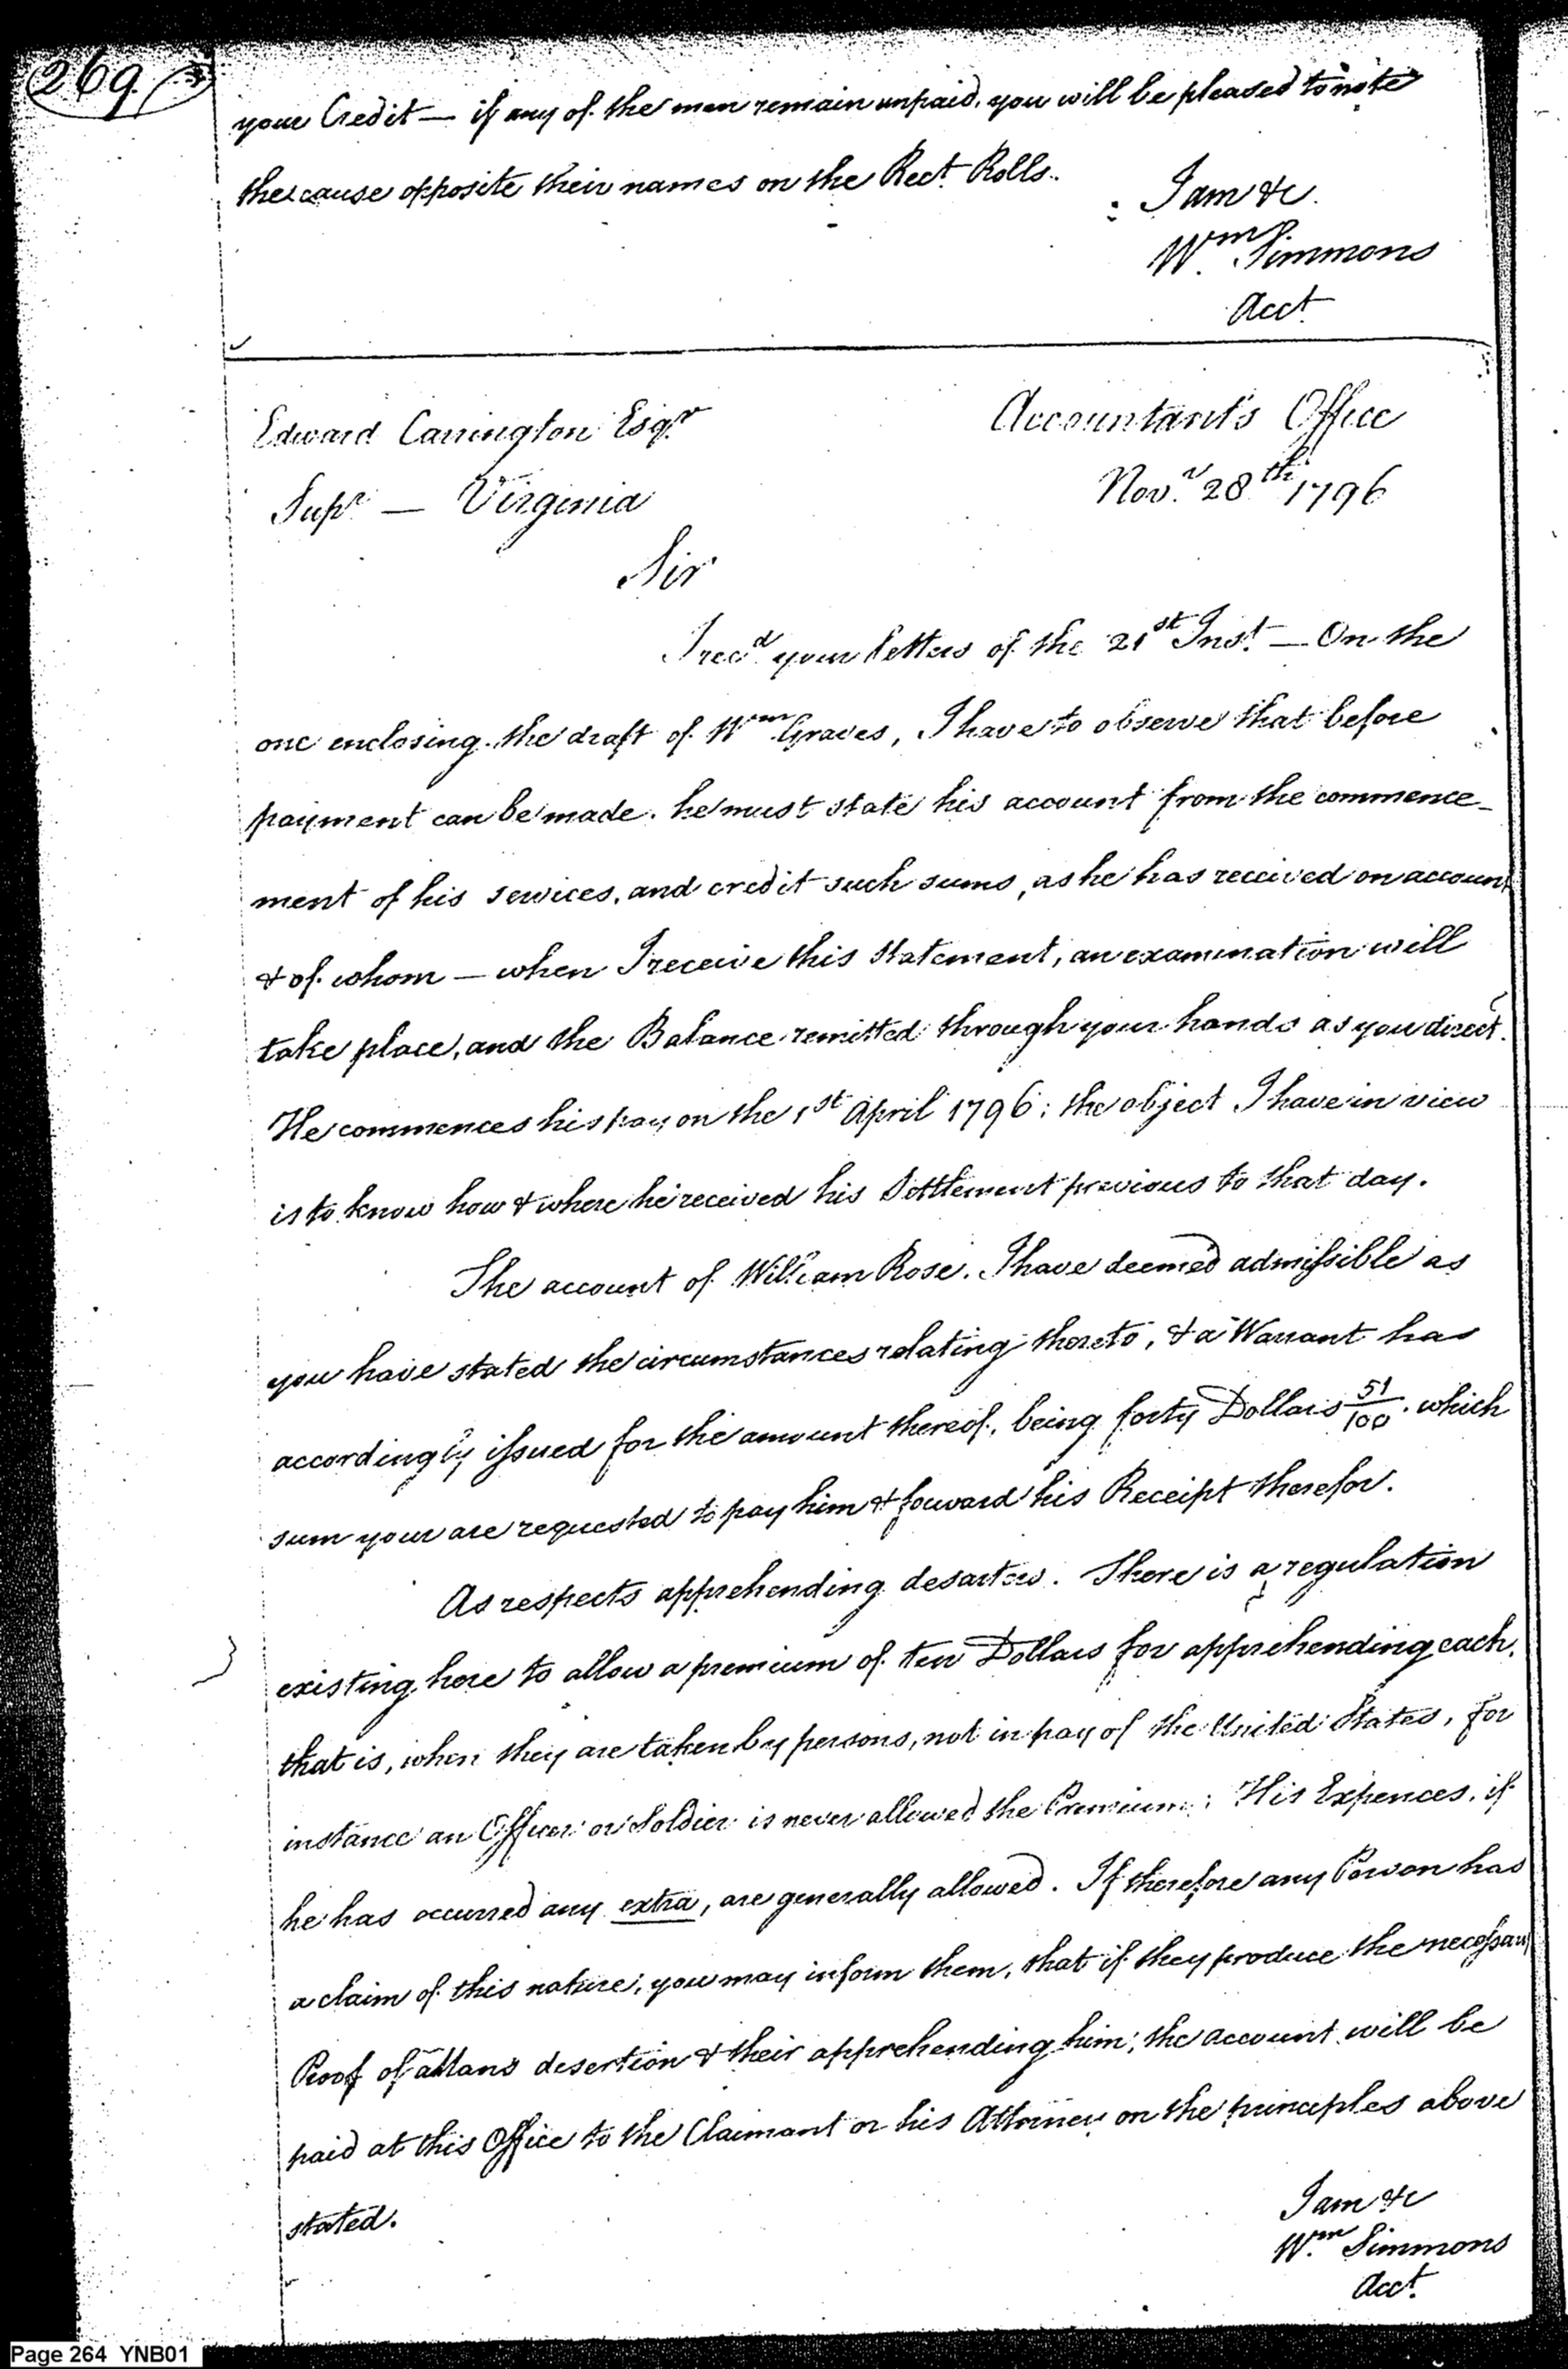 269
your Credit — if any of the men remain unpaid, you will be pleased to note
the cause opposite their names on the Rect. Rolls.
I am &c.
Wm. Simmons
Acct.
Edward Carrington Esqr.
Accountant's Office
Supr. — Virginia
Novr. 28th 1796
Sir
I recd. your letters of the 21st Inst. — On the
one enclosing the draft of Wm. Graves, I have to observe that before
payment can be made. he must state his account from the commence-
ment of his services, and credit such sums, as he has received on account
& of whom — when I receive this statement, an examination will
take place, and the Balance remitted through your hands as you direct.
He commences his pay on the 1st April 1796; the object I have in view
is to know how & where he received his Settlement previous to that day.
The account of William Rose. I have deemed admissible as
you have stated the circumstances relating thereto, & a Warrant has
accordingly issued for the amount thereof, being forty Dollars 51/100. which
sum your are requested to pay him & forward his Receipt therefor.
As respects apprehending desarters. There is a regulation
existing here to allow a premium of ten Dollars for apprehending each,
that is, when they are taken by persons, not in pay of the United States, for
instance an Officer or Soldier is never allowed the Premium; His Expences, if
he has occurred any extra, are generally allowed. If therefore any Person has
a claim of this nature; you may inform them, that if they produce the necessary
Proof of a Mans desertion & their apprehending him; the account will be
paid at this Office to the Claimant or his Attorney on the principles above
stated.
I am &c
Wm. Simmons
Acct.
Page 264 YNB01